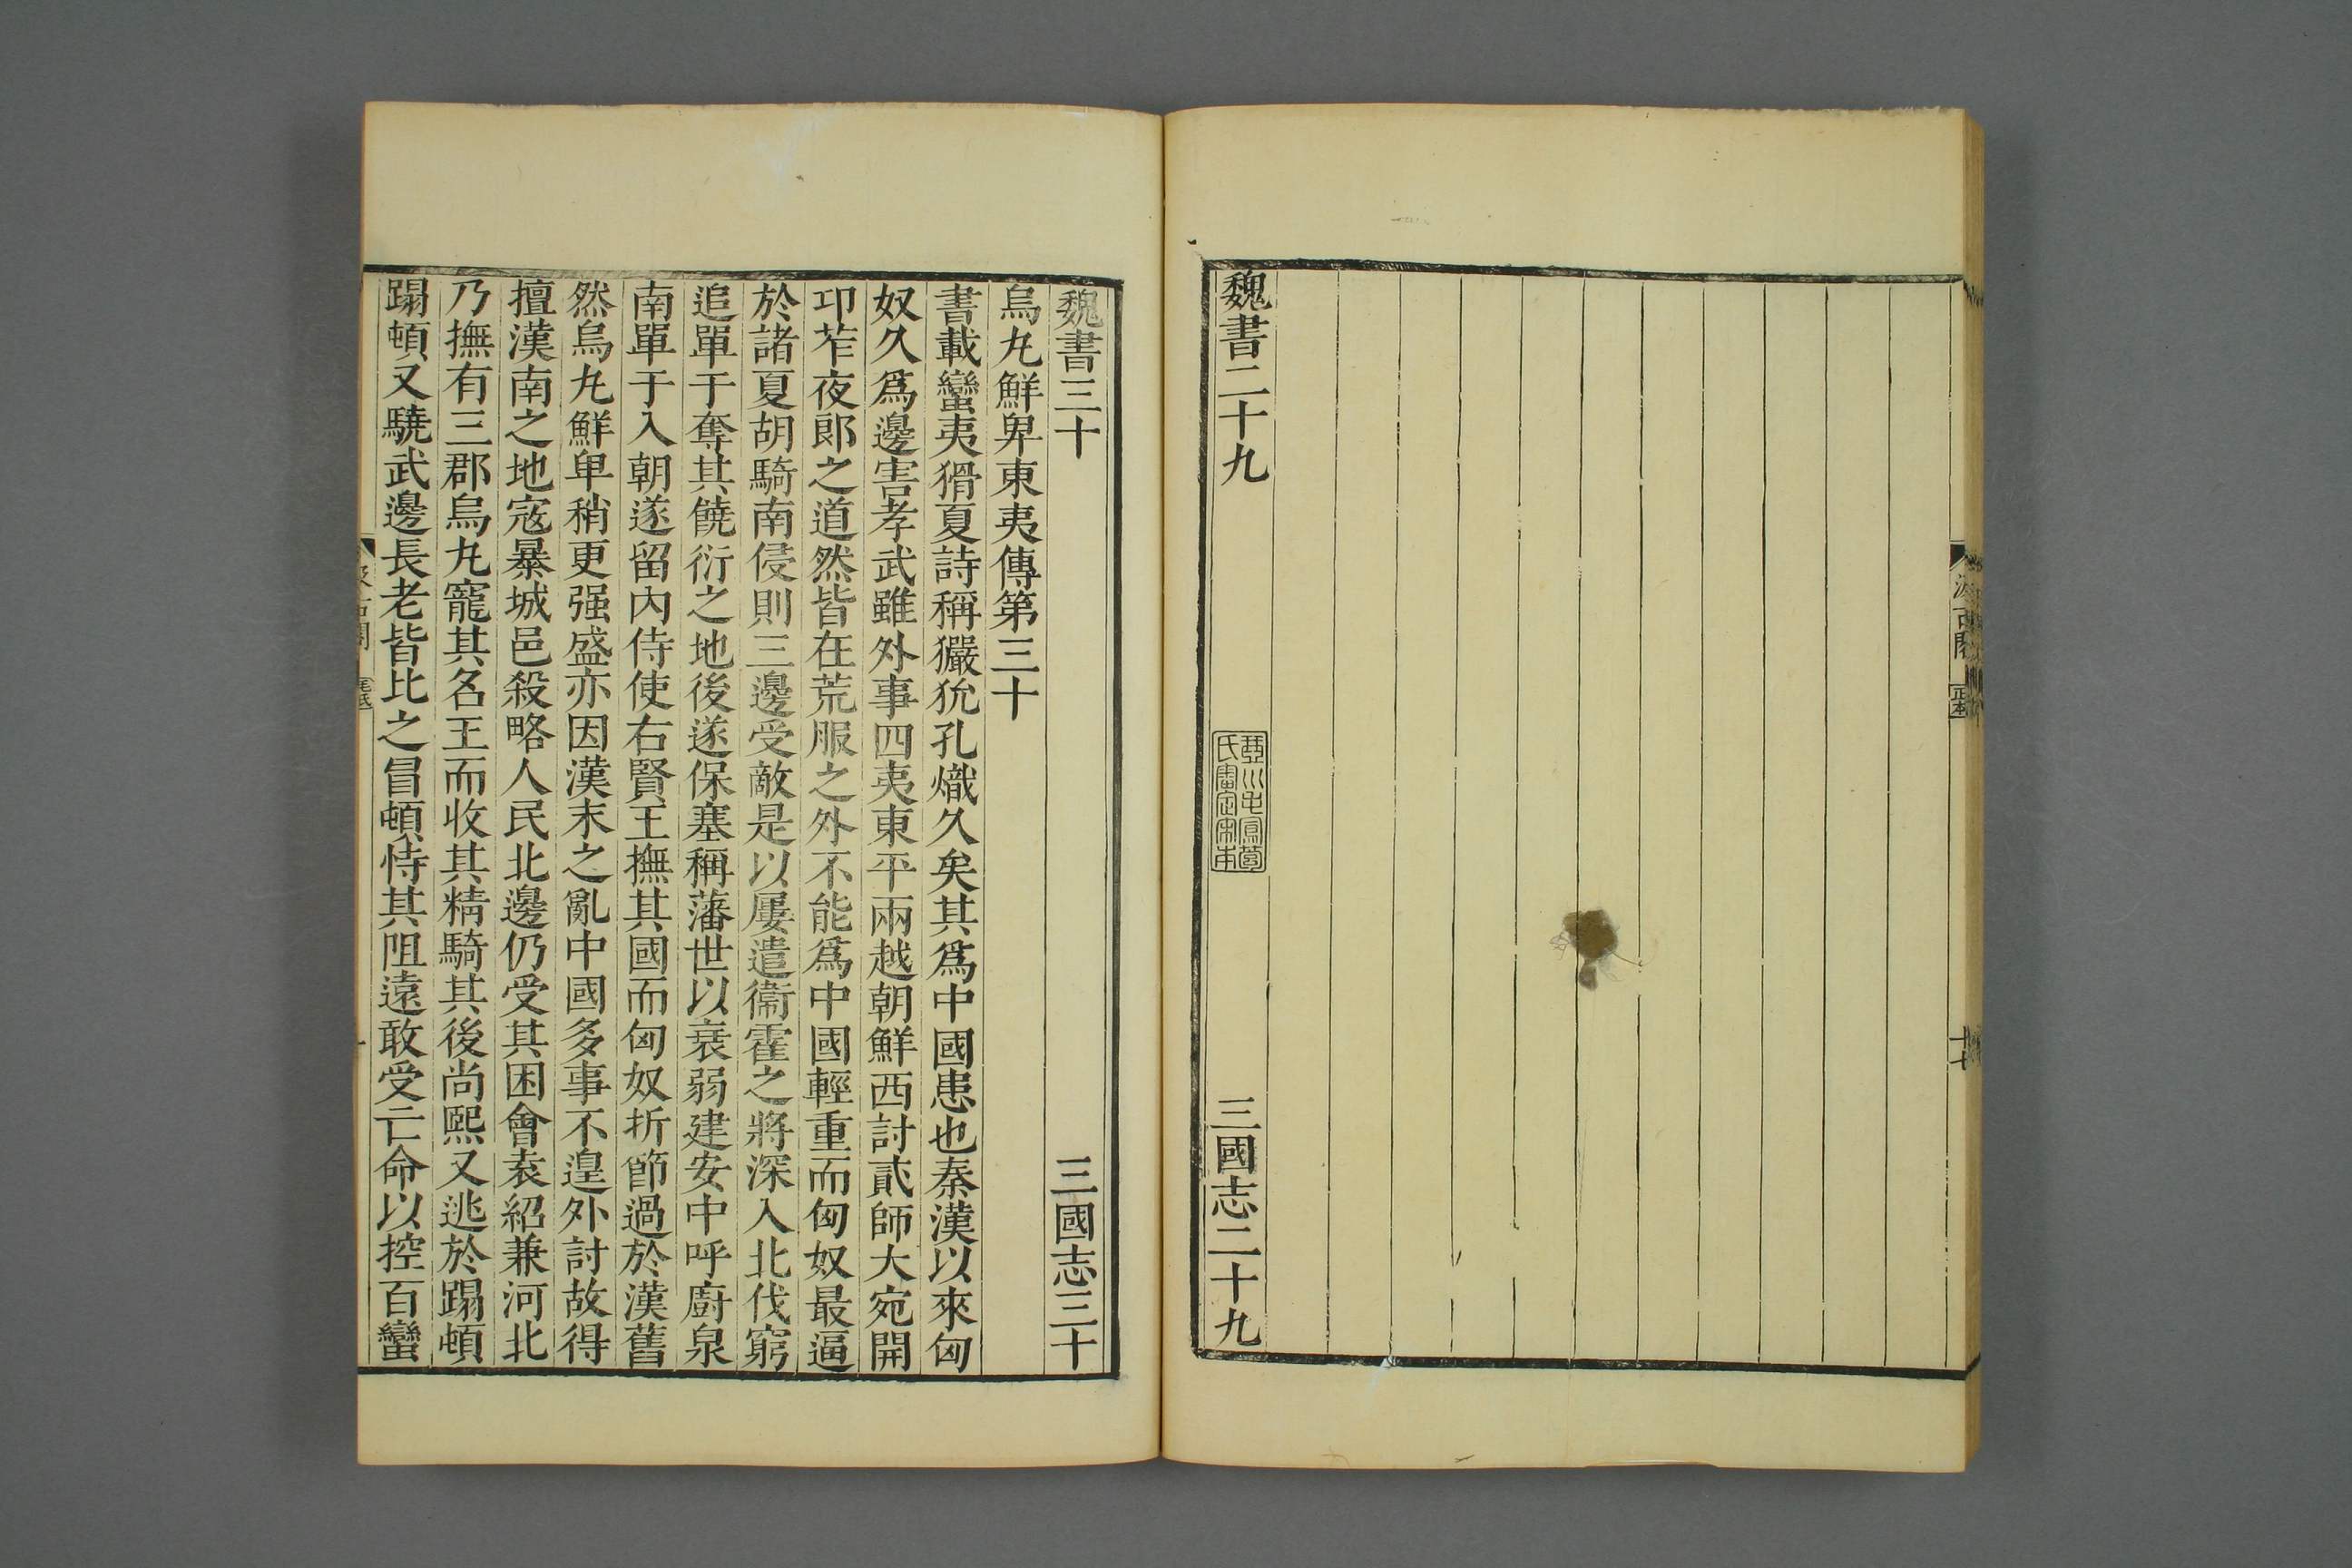 汲古閣
正本
十七
魏書二十九
三國志二十九
琴川毛鳳苞
氏審定宋本
魏書三十
三國志三十
烏丸鮮卑東夷傳第三十
書載蠻夷猾夏詩稱玁狁孔熾久矣其爲中國患也秦漢以來匈
奴久爲邊害孝武雖外事四夷東平兩越朝鮮西討貳師大宛開
卭苲夜郎之道然皆在荒服之外不能爲中國輕重而匈奴最逼
於諸夏胡騎南侵則三邊受敵是以屢遣衞霍之將深入北伐窮
追單于奪其饒衍之地後遂保塞稱藩世以衰弱建安中呼廚泉
南單于入朝遂留內侍使右賢王撫其國而匈奴折節過於漢舊
然烏丸鮮卑稍更强盛亦因漢末之亂中國多事不遑外討故得
擅漢南之地寇暴城邑殺略人民北邊仍受其困會袁紹兼河北
乃撫有三郡烏丸寵其名王而收其精騎其後尚熙又逃於蹋頓
蹋頓又驍武邊長老皆比之冒頓恃其阻遠敢受亡命以控百蠻